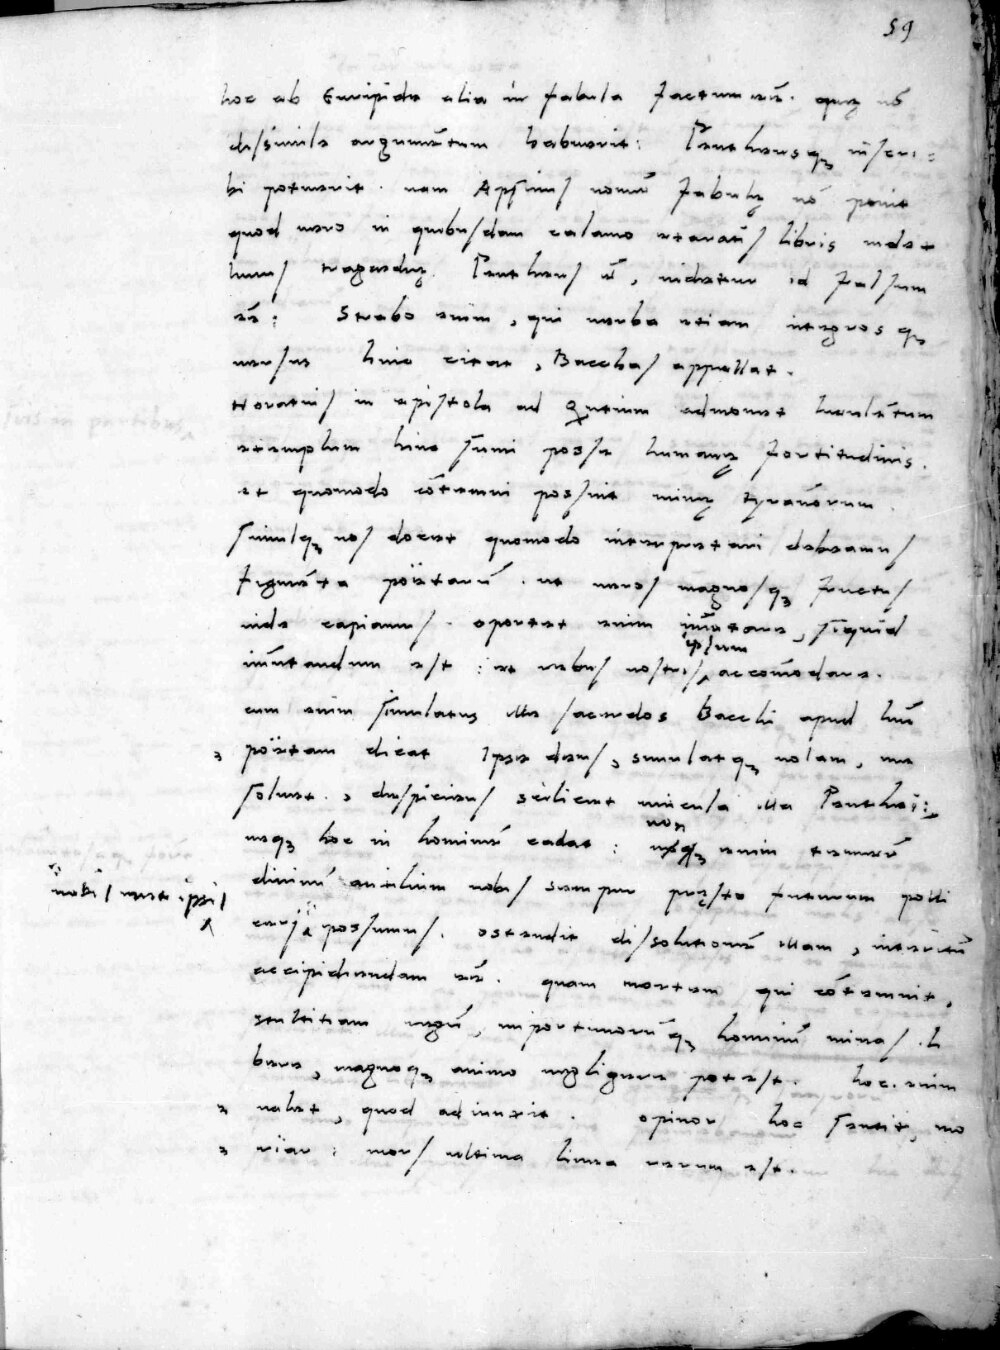 59
hoc ab Euripide alia in fabula factum eẽ. quę nõ
dissimile argumẽtum habuerit: Pentheusq; inscri=
bi potuerit. nam Apsinus nomẽ fabulę nõ ponit
quod vero in quibusdam calamo exaratis libris index
huius tragedię Pentheus ẽ, videtur id falsum
eẽ: Strabo enim, qui verba etiam integros q;
versus hinc citat, Bacchas appellat.
Horatius in epistola ad Quintium admonet luculẽtum
exemplum hinc sumi posse humanę fortitudinis.
et quomodo cõtemni possint minę tyrãnorum.
simulq; nos docet quomodo interpretari debeamus
figmẽta poëtarũ. ut veros magnosq; fructus
inde capiamus. oportet enim imũtare, siquid
imũtandum est: et rebus nostris ipsum accomodare.
cum enim simulatus ille sacerdos Bacchi apud hũc
, poëtam dicat Ipse deus, simulatq; volam, me
soluet., despiciens scilicet vincula illa Penthei:
neq; hoc in hominẽ cadat: non enim
diuinũ auxilium nobis semper pręsto futurum polli
nobis met ipsis
ceri possumus. ostendit dissolutionẽ illam, interitũ
accipiendam eẽ. quam mortem qui cõtemnit,
stultitiam regũ, importunorũq; hominũ minas li
bere, magnoq; animo negligere potest. hoc enim
, valet, quod adiunxit. opinor hoc sentit, mo
, riar: mors ultima linea rerum est.